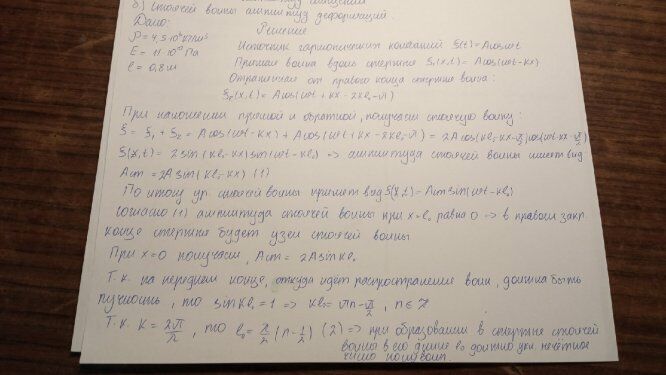 б) стоячей волны амплитуд деформаций.
Дано: Решение
ρ = 4,5·10³ кг/м³
E = 11·10¹⁰ Па Источник гармонических колебаний ξ(t) = A cos ωt
ℓ = 0,8 м Прямая волна вдоль стержня ξ₁(x,t) = A cos(ωt - kx)
Отраженная от правого конца стержня волна:
ξ₂(x,t) = A cos(ωt + kx - 2kℓ₀ - π)
При наложении прямой и обратной, получаем стоячую волну:
ξ = ξ₁ + ξ₂ = A cos(ωt - kx) + A cos(ωt + kx - 2kℓ₀ - π) = 2A cos(kℓ₀ - kx - π/2) cos(ωt - kx - π/2)
ξ(x,t) = 2 sin(kℓ₀ - kx) sin(ωt - kℓ₀) => амплитуда стоячей волны имеет вид
Aст = 2A sin(kℓ₀ - kx) (1)
По итогу ур. стоячей волны примет вид ξ(x,t) = Aст sin(ωt - kℓ₀)
Согласно (1) амплитуда стоячей волны при x = ℓ₀ равна 0 => в правом закр.
конце стержня будет узел стоячей волны
При x = 0 получаем, Aст = 2A sin kℓ₀
Т.к. на переднем конце, откуда идёт распространение волн, должна быть
пучность, то sin kℓ₀ = 1 => kℓ₀ = πn - π/2, n ∈ Z
Т.к. k = 2π/λ, то ℓ₀ = λ/2 (n - 1/2) (2) => при образовании в стержне стоячей
волны в его длине ℓ₀ должно укл. нечётное
число полуволн.